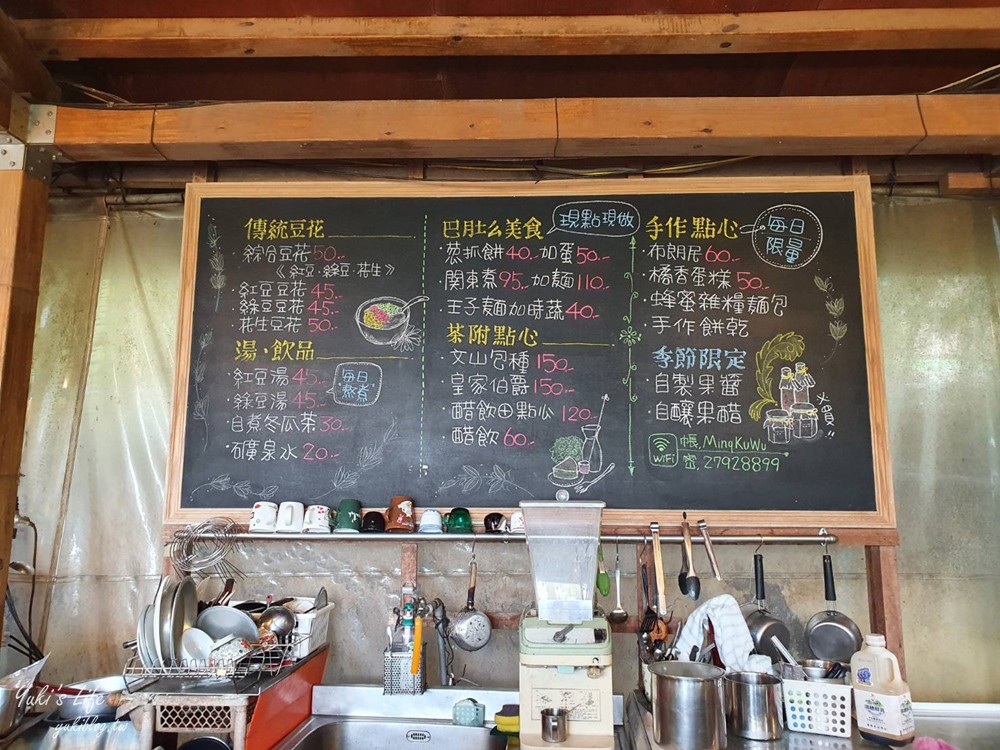 傳統豆花
·綜合豆花50.-
《紅豆·綠豆·花生》
·紅豆豆花 45.-
綠豆豆花 45.-
·花生豆花 50.-
湯·飲品
·紅豆湯 45.-
綠豆湯 45.-
每日熬煮
·自煮冬瓜茶30.-
·礦泉水 20.-
巴肚么美食
現點現做
·蔥抓餅40.-加蛋50.-
·関東煮95.-加麵110.-
·王子麵加時蔬40.-
茶附點心
·文山包種 150.-
·皇家伯爵150.-
·醋飲⊕點心 120.-
·醋飲 60.-
手作點心
每日限量
·布朗尼 60.-
·橘香蛋糕 50.-
·蜂蜜雜糧麵包
·手作餅乾
季節限定
·自製果醬
·自釀果醋
必買!!
WiFi
帳.MingKuWu
密.27928899
Yuki's Life
yukiblog.tw